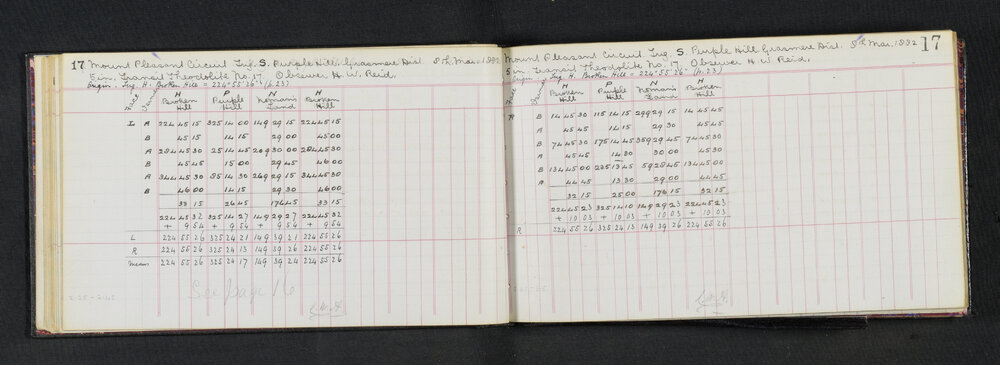 17 Mount Pleasant Circuit Trig. S. Purple Hill. Grasmere Dist. 8th Mar. 1932
5 in. Transit Theodolite No. 17. Observer H. W. Reid.
Origin. Trig. H. Broken Hill = 224° 55' 26" (p. 23)
Face H P N H
Broken Hill Purple Hill Noman's Land Broken Hill
L A 224 45 15 325 14 00 149 29 15 224 45 15
B 45 15 14 15 29 00 45 00
A 284 45 30 25 14 45 209 30 00 284 45 30
B 45 45 15 00 29 45 46 00
A 344 45 30 85 14 30 269 29 15 344 45 30
B 46 00 14 15 29 30 46 00
33 15 26 45 176 45 33 15
224 45 32 325 14 27 149 29 27 224 45 32
+ 9 54 + 9 54 + 9 54 + 9 54
L 224 55 26 325 24 21 149 39 21 224 55 26
R 224 55 26 325 24 13 149 39 26 224 55 26
mean 224 55 26 325 24 17 149 39 24 224 55 26
See page 16
Mount Pleasant Circuit Trig. S. Purple Hill Grasmere Dist. 8th Mar. 1932 17
5 in. Transit Theodolite No. 17. Observer H. W. Reid.
Origin Trig. H. Broken Hill = 224° 55' 26" (p. 23)
Face H P N H
Broken Hill Purple Hill Noman's Land Broken Hill
R B 14 45 30 115 14 15 299 29 15 14 45 45
A 45 45 14 15 29 30 45 45
B 74 45 30 175 14 45 359 29 45 74 45 30
A 45 45 14 30 30 00 45 30
B 134 45 00 235 13 45 59 28 45 134 45 00
A 44 45 13 30 29 00 44 45
32 15 25 00 176 15 32 15
224 45 23 325 14 10 149 29 23 224 45 23
+ 10 03 + 10 03 + 10 03 + 10 03
R 224 55 26 325 24 13 149 39 26 224 55 26